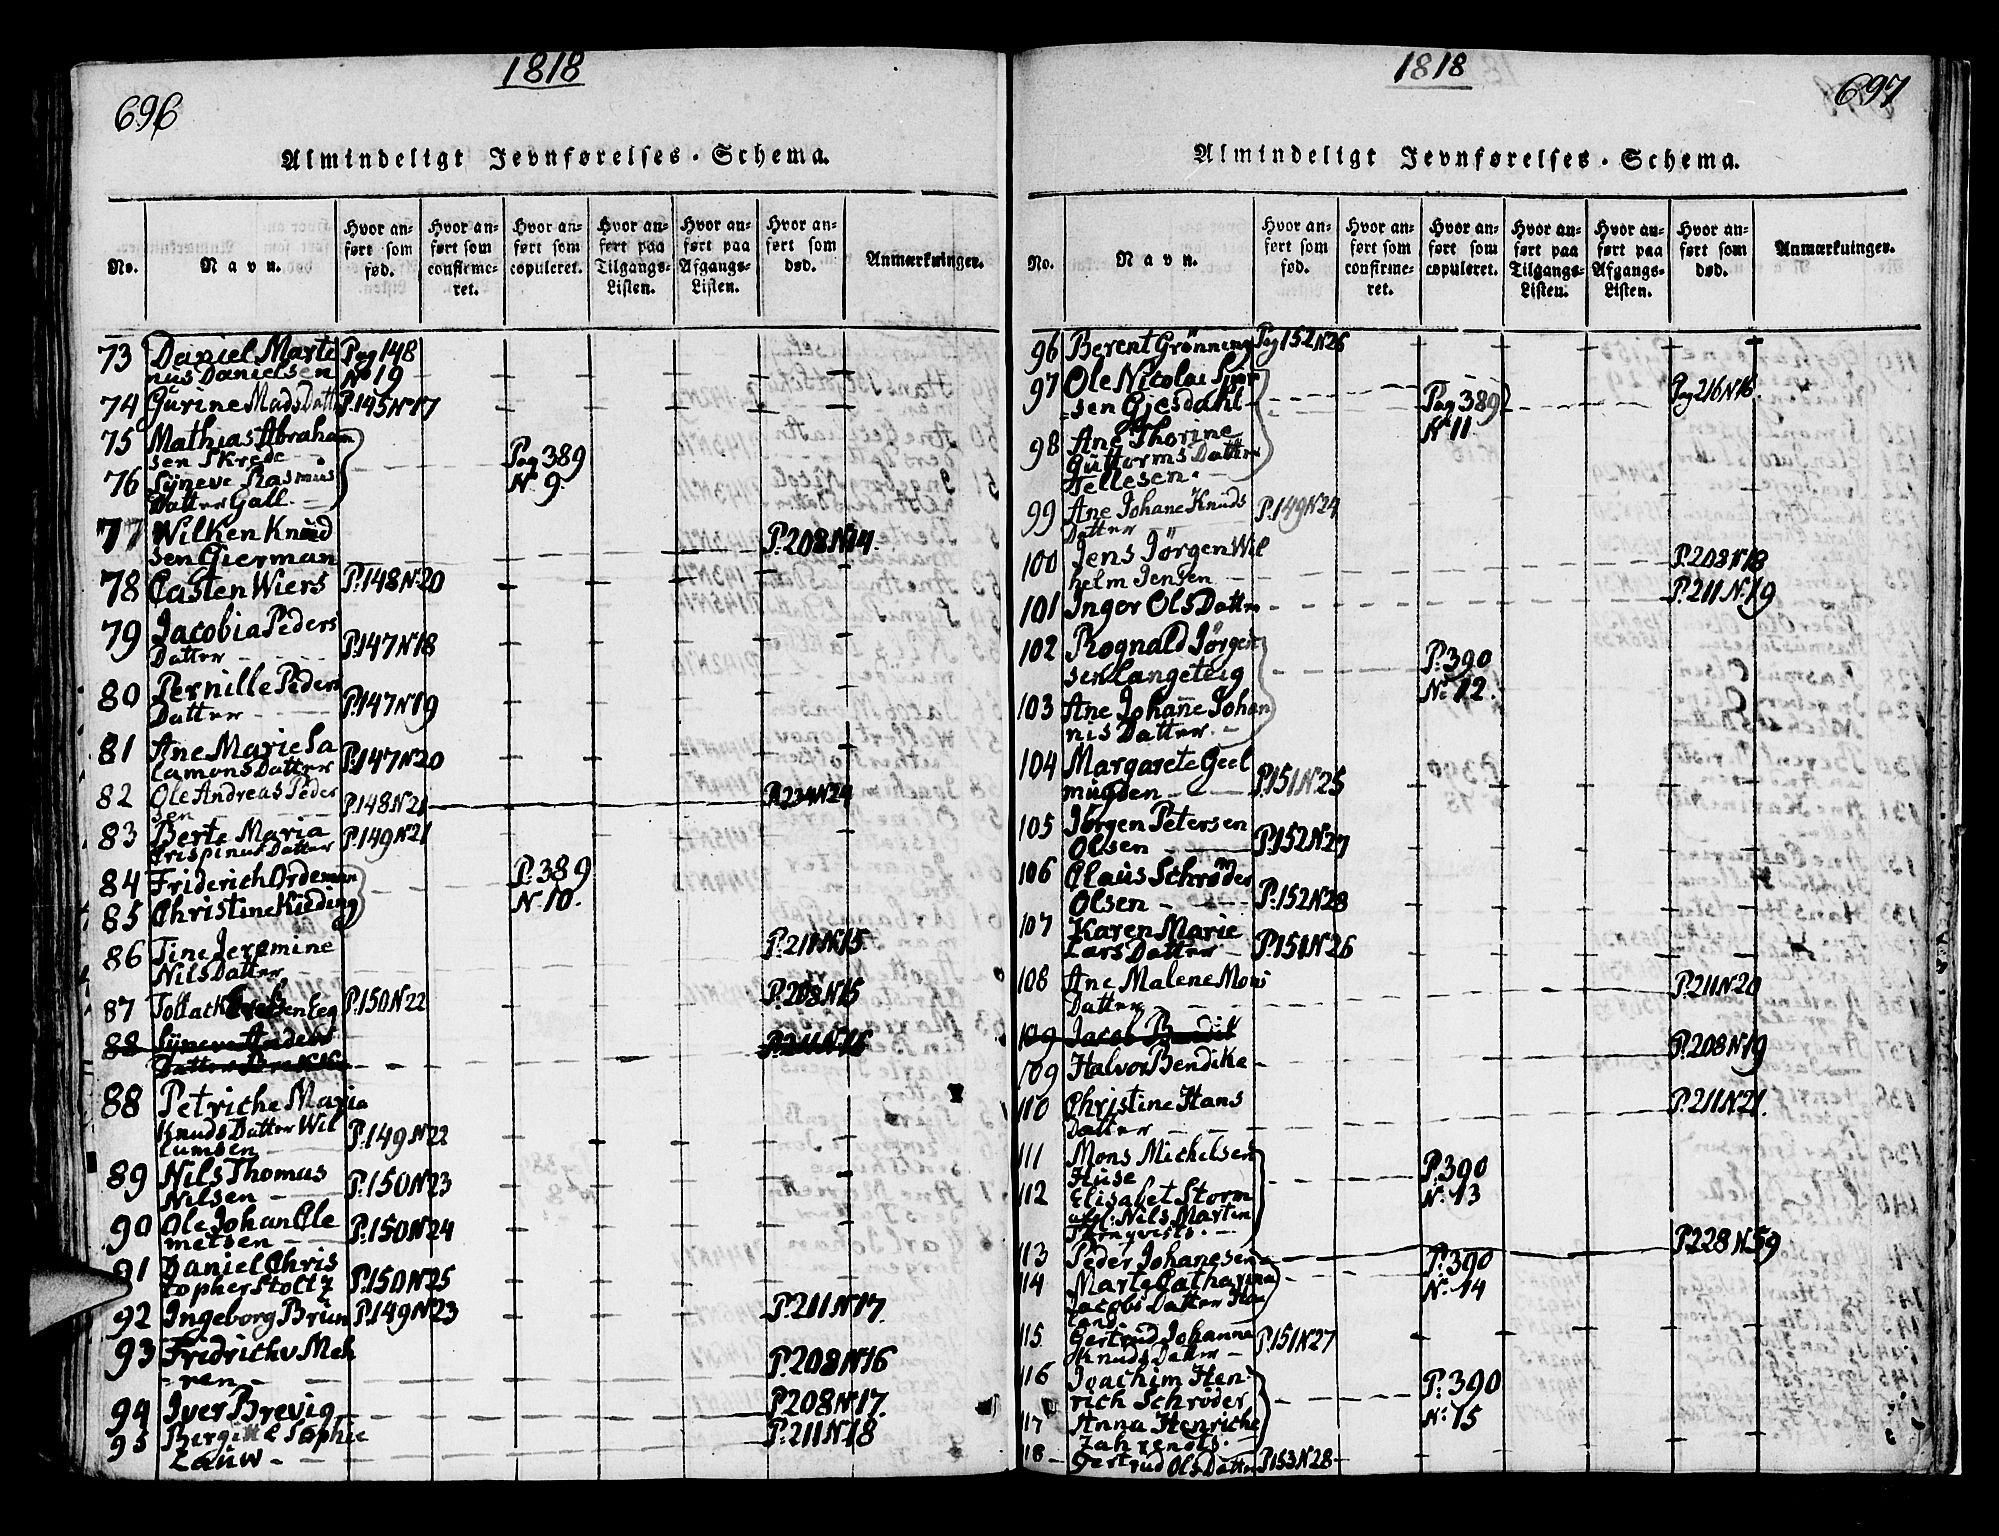 1818
696
Almindeligt Jevnførelses-Schema.
No.
Navn.
Hvor anført som fød.
Hvor anført som confirmeret.
Hvor anført som copuleret.
Hvor anført paa Tilgangs-Listen.
Hvor anført paa Afgangs-Listen.
Hvor anført som død.
Anmærkninger.
73 Daniel Marti Pag 148
nus Danielsen No 19
74 Gurine Mads Datt P.145 No 17
75 Mathias Abraham
sen Skrede Pag 389
76 Syneve Rasmus N. 9.
Datter Gall.
77 Wilken Knud
sen Gierman P.208 N14.
78 Casten Wiers P.148 N.20
79 Jacobia Peders
Datter P.147 N18
80 Pernille Peders
Datter P.147 N19
81 Ane Marie Sa
lamons Datter P.147 N20
82 Ole Andreas Peder
sen P.148 N21 P.234 N24
83 Berte Maria P.149 N21
Krispinus Datter
84 Friderich Ordeman P.389
85 Christine Kielding N. 10.
86 Tine Jeremine P.211 N15.
Nils Datter
87 Tollack senLea P.150 N22 P.208 N15
88 Syneve Anders
Datter Brekke P.211 N16
88 Petriche Maria
Knuds Datter Wil P.149 N22
lumsen
89 Nils Thomas
Nilsen P.150 N23
90 Ole Johan Cle
metsen P.150 N24
91 Daniel Chris
topher Stoltz P.150 N25
92 Ingeborg Brün P.149 N23 P.211 N17.
93 Fridrich v Meh
ren P.208 N16
94 Iver Brevig P208 N.17.
95 Bergitte Sophie P.211 N18
Lauw
1818
697
Almindeligt Jevnførelses-Schema.
No.
Navn.
Hvor anført som fød.
Hvor anført som confirmeret.
Hvor anført som copuleret.
Hvor anført paa Tilgangs-Listen.
Hvor anført paa Afgangs-Listen.
Hvor anført som død.
Anmærkninger.
96 Berent Grönning Pag 152 N26
97 Ole Nicolai Siver
sen Gjesdahl Pag 389 Pag 216 N16.
98 Ane Thorine N 11.
Guttorms Datter
Tellesen.
99 Ane Johane Knuds P.149 N24
Datter
100 Jens Jörgen Wil
helm Jensen P.208 N18
101 Inger Ols Datter P.211 N.19
102 Rognald Jörgen
sen Langeteig P.390
103 Ane Johanne Johan N. 12.
nis Datter.
104 Margarete Geel
müyden P.151 N25
105 Jörgen Petersen
Olsen P.152 N27
106 Claus Schrøder
Olsen P.152 N28
107 Karen Marie
Lars Datter P.151 N26
108 Ane Malene Mons
Datter P.211 N20
109 Jacob Bendik
109 Halvor Bendike P.208 N.19
110 Christine Hans
Datter P.211 N21.
111 Mons Michelsen
Huse P.390
112 Elisabet Storm N. 13
afgl: Nils Martin
113 Peder Johanesen P.390 P.228 N59
114 Marte Catharina N. 14
Jacobs Datter Hau
land
115 Gertrud Johanna P.151 N27
Knuds Datter
116 Joachim Hen
rich Schrøder P.390
117 Anna Henriche N. 15
Zahrendts.
118 Gertrud Ols Datter P.153 N28